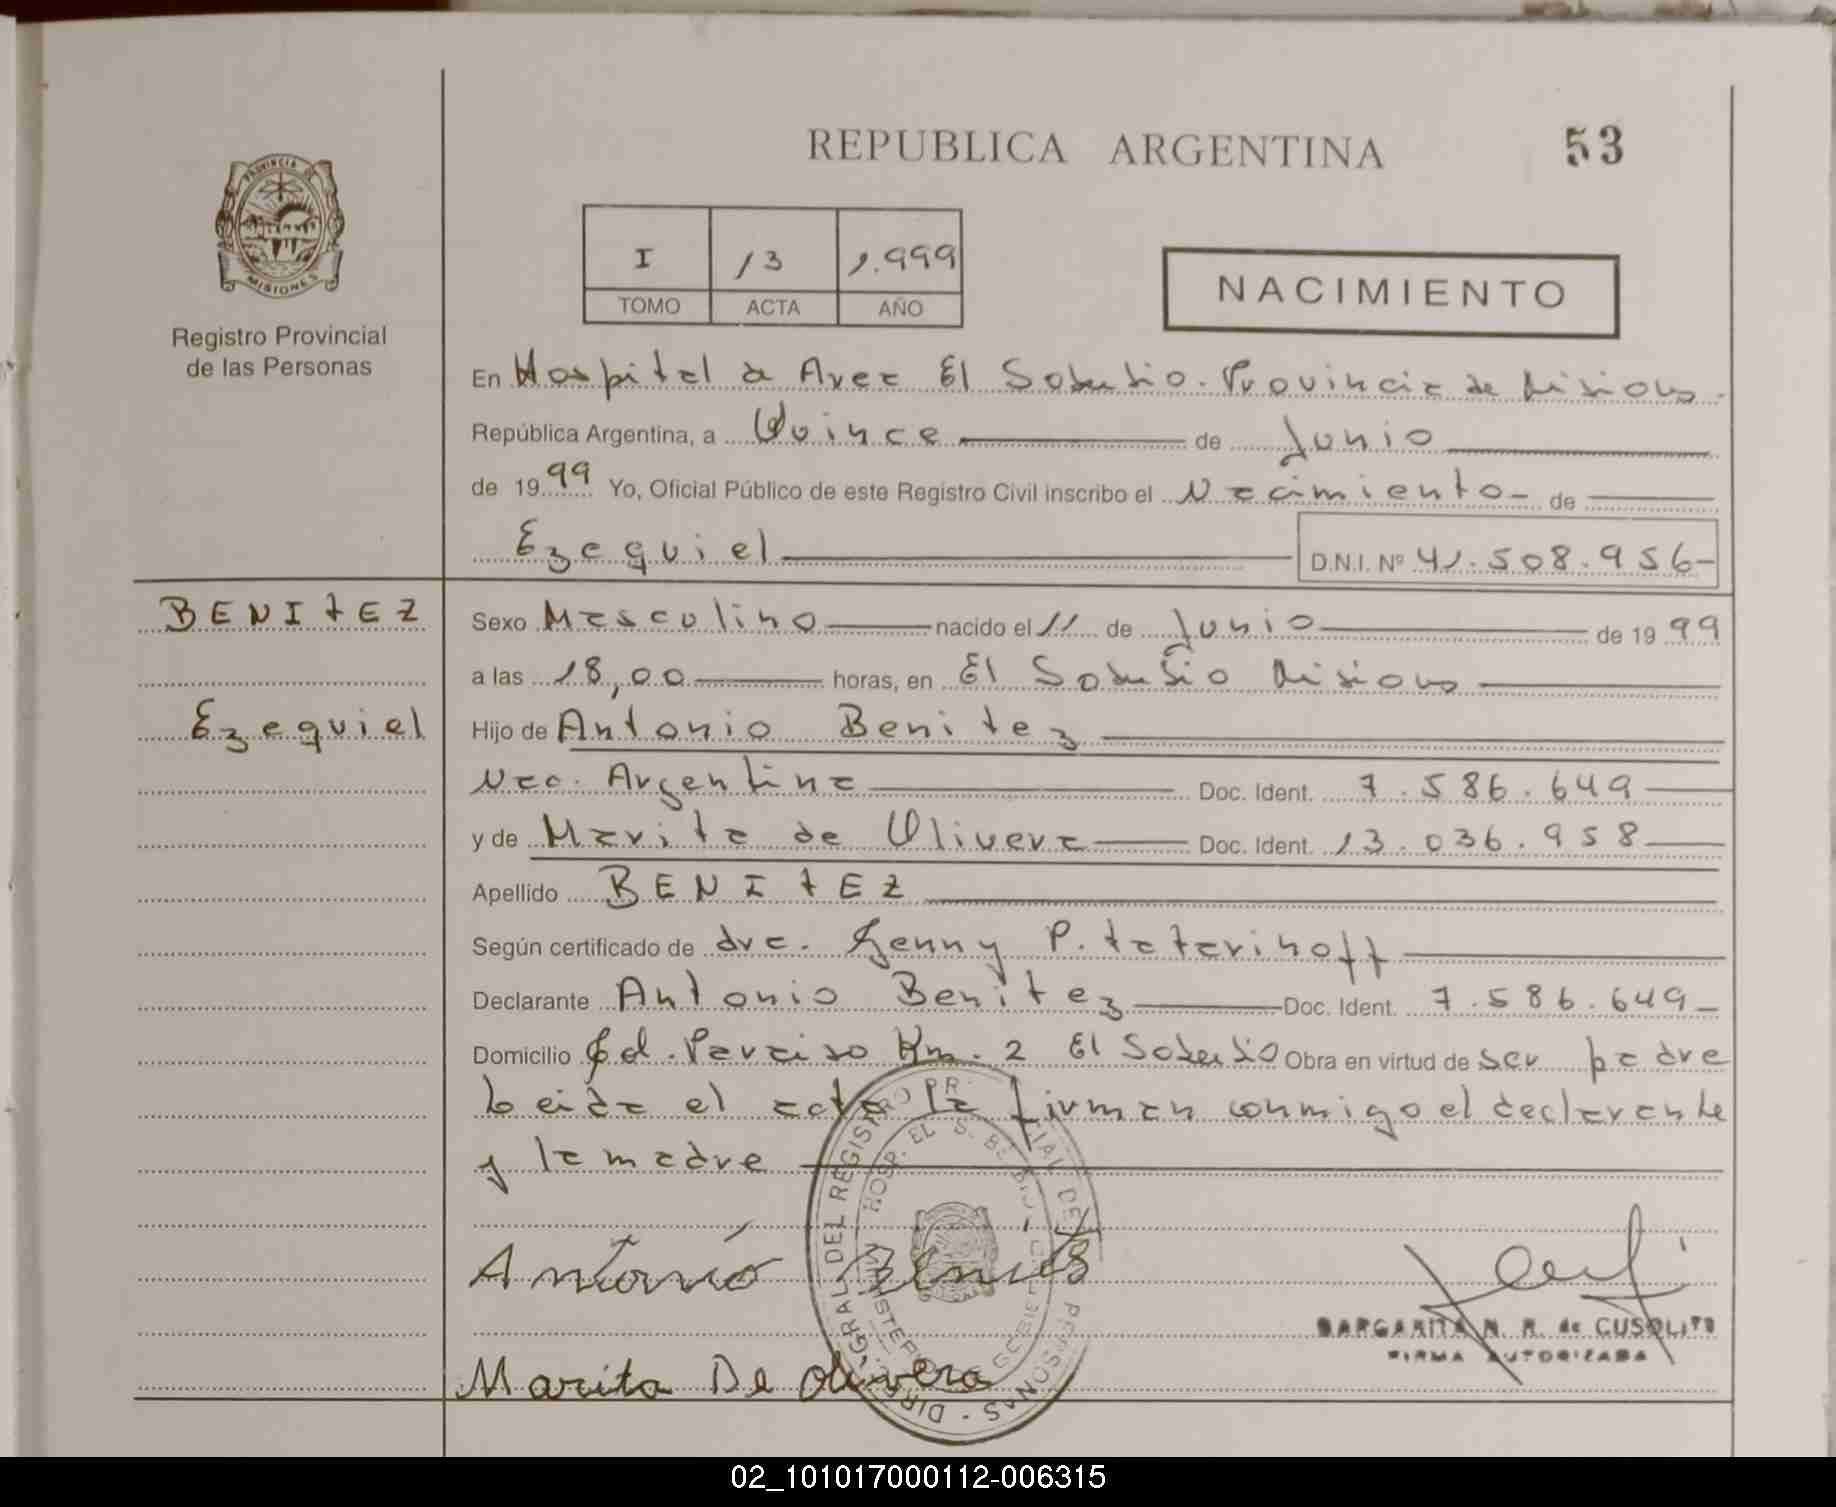 REPUBLICA ARGENTINA
53
PROVINCIA DE
MISIONES
Registro Provincial
de las Personas
I 13 1.999
TOMO ACTA AÑO
NACIMIENTO
En Hospital de Area El Soberbio. Provincia de Misiones.
República Argentina, a Quince de Junio
de 1999 Yo, Oficial Público de este Registro Civil inscribo el Nacimiento de
Ezequiel D.N.I. Nº 41.508.956
BENITEZ
Ezequiel
Sexo Masculino nacido el 11 de Junio de 1999
a las 18,00 horas, en El Soberbio Misiones
Hijo de Antonio Benitez
Nac. Argentina Doc. Ident. 7.586.649
y de Marita de Olivera Doc. Ident. 13.036.958
Apellido BENITEZ
Según certificado de dra. Genny P. tatarinoff
Declarante Antonio Benitez Doc. Ident. 7.586.649
Domicilio Col. Paraiso Km. 2 El Soberbio Obra en virtud de ser padre
Leida el acta la firman conmigo el declarante
y la madre
Antonio Benites
MARGARITA N. R. de CUSOLITO
FIRMA AUTORIZADA
Marita De Olivera
02_101017000112-006315